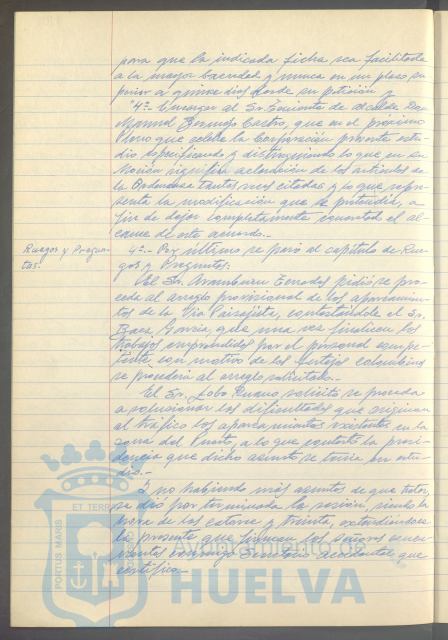 para que la indicada ficha sea facilitada
a la mayor brevedad y nunca en un plazo su-
perior a quince días desde su petición y
"4º- Encargar al Sr. Teniente de alcalde Don
Manuel Bermudo Castro, que en el próximo
Pleno que celebre la Corporación presente estu-
dio especificando y distinguiendo lo que en su
Moción significa aclaración de los artículos de
la Ordenanza tantas veces citadas y lo que repre-
senta la modificación que se pretende, a
fin de dejar completamente el al-
cance de este acuerdo.-
Ruegos y Pregun-
tas.
4º.- Por último se pasó al capítulo de Rue-
gos y Preguntas:
El Sr. Aramburu pidió se pro-
ceda al arreglo provisional de los aparcamien-
tos de la Vía Paisajista, contestándole el Sr.
Baez García, que una vez finalicen los
trabajos emprendidos por el personal compe-
tente con motivo de los festejos colombinos
se procederá al arreglo solicitado.-
El Sr. Lobo Ruano solicitó se proceda
a solucionar las dificultades que originan
al tráfico los aparcamientos existentes en la
zona del Puerto, a lo que contestó la presi-
dencia que dicho asunto se tenía en estu-
dio.-
Y no habiendo más asuntos de que tratar,
se dió por terminada la sesión, siendo la
hora de las catorce y treinta, extendiéndose
la presente que firman los Señores concu-
rrentes conmigo Secretario accidental, que
certifico.-
PORTUS MARIS
ET TERRAE
Ayuntamiento de
HUELVA